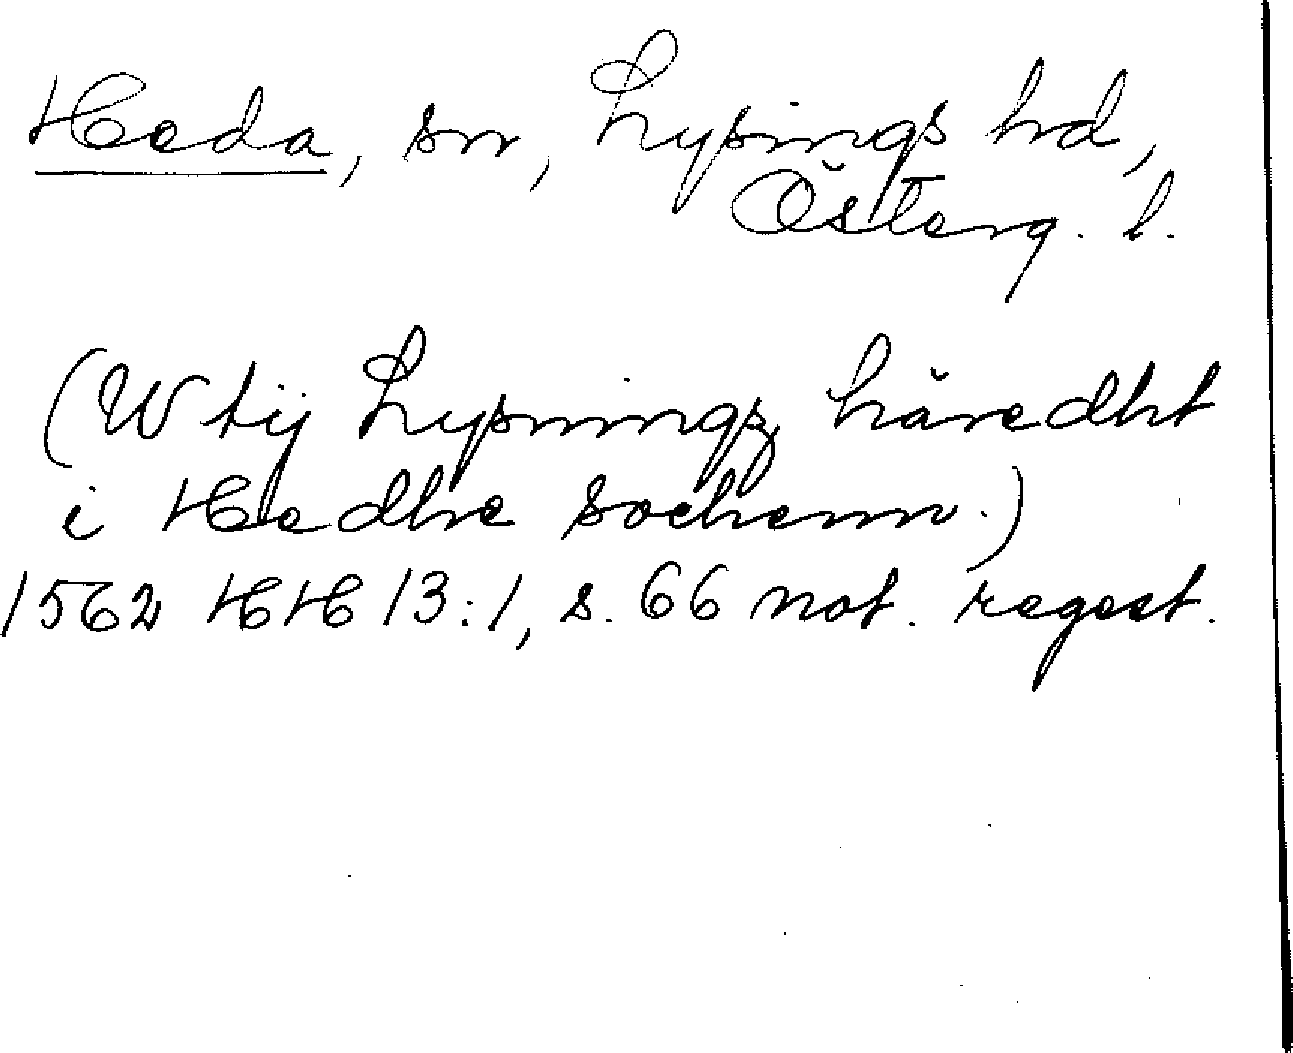 Heda, sn, Lysings hd,
Österg. l.
(W tij Lysningz häredht
i Hedhe sochenn.)
1562 HH 13:1, s. 66 not. regest.